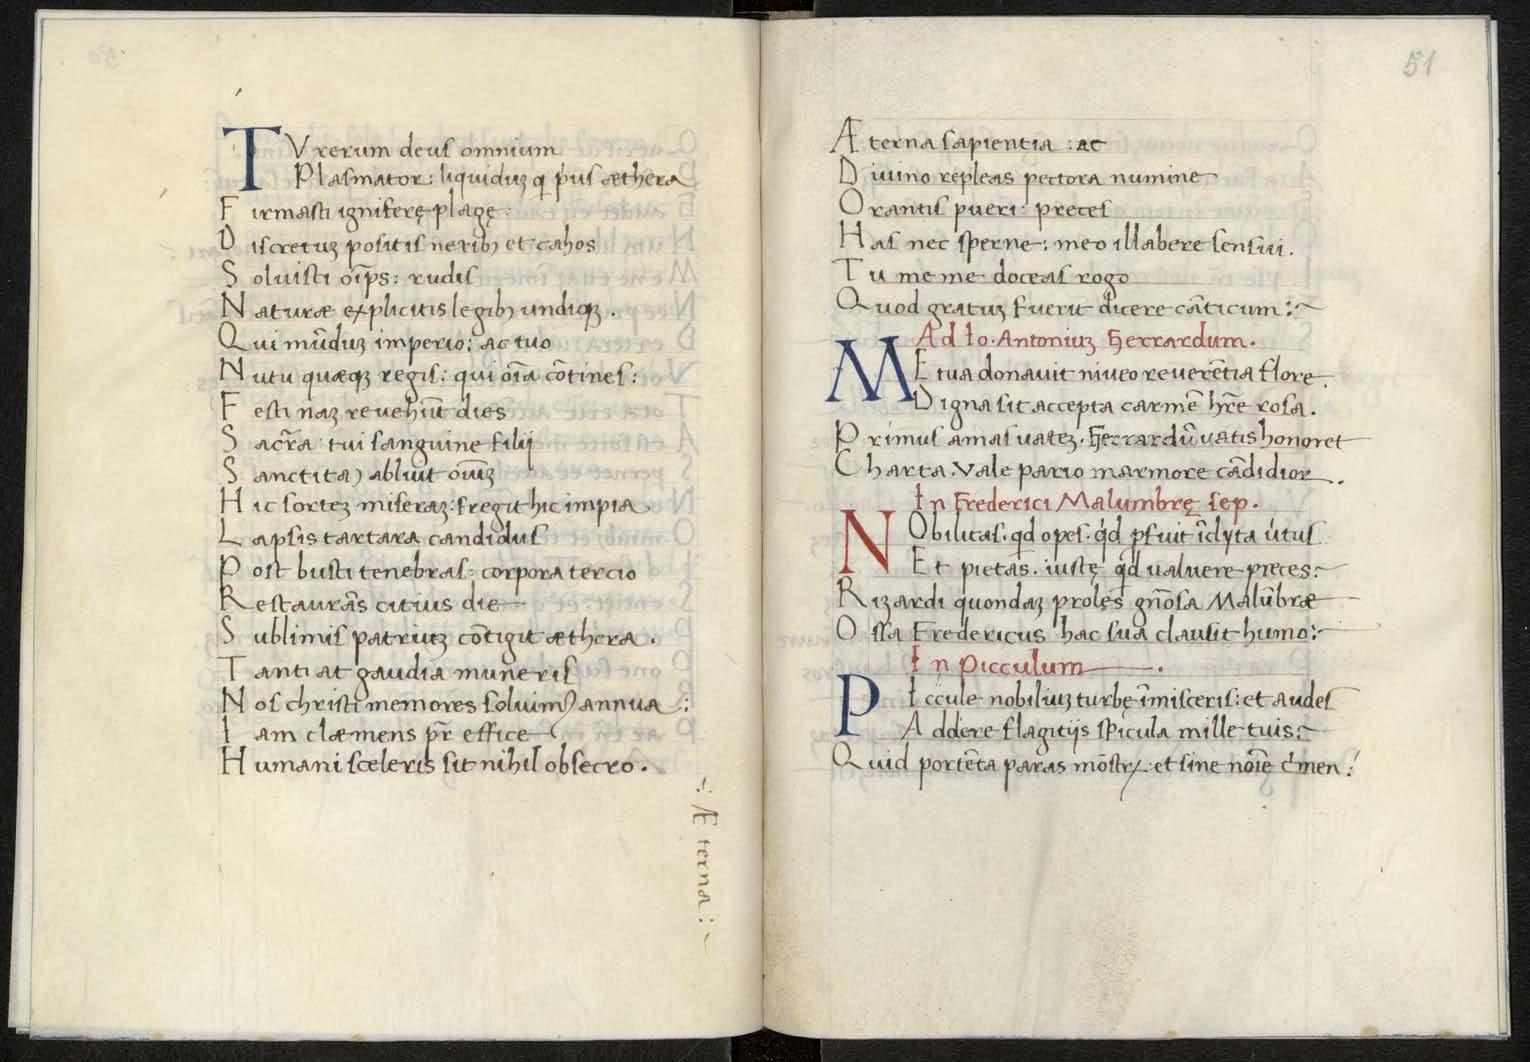 TV rerum deus omnium
Plasmator: liquiduꝫ ꝗ p̍us æthera
F irmasti igniferę plagę
D iscretuꝫ positis neribꝫ et cahos
S oluisti oi͞ps: rudis
N aturæ explicitis legibꝫ undiqꝫ.
Q ui mu͞duꝫ imperio: ac tuo
N utu quæqꝫ regis: qui oi͞a co͞tines:
F esti naꝫ reuehiu͞t dies
S acr͞a tui sanguine filij
S anctita) abluit oi͞uꝫ
H ic sorteꝫ miseraꝫ: fregit hic impia
L apsis tartara candidus
P ost busti tenebras: corpora tercio
R estaura͞s citius die
S ublimis patriuꝫ co͞tigit æthera.
T anti at gaudia muneris
N os christi memores soluimꝰ annua:
I am clæmens pr͞ effice
H umani sceleris sit nihil obsecro.
Æterna:
51
Æ terna sapientia: ac
D iuino repleas pectora numine
O rantis pueri preces
H as nec sperne: meo illabere sensui.
T u meme doceas rogo
Q uod gratuꝫ fuerit dicere ca͞ticum:~
Ad Io. Antoniuꝫ Ferrardum.
ME tua donauit niueo reuere͞tia flore.
D igna sit accepta carme͞ hr͞e rosa.
P rimus amas uateꝫ. Ferrardu͞ uatis honoret
C harta. Vale pario marmore ca͞didior.
In Frederici Malumbrę sep.
NObilitas. qd opes. q̍d ꝓfuit i͞clyta u̍tus
Et pietas. iustę q̍d ualuere preces:~
R iꝫardi quondaꝫ proles gn͞osa Malu͞bræ
O ssa Fredericus hac sua clausit humo:~
In Picculum.
PIccule nobiliuꝫ turbę i͞misceris: et audes
A ddere flagitijs spicula mille tuis:~
Q uid porte͞ta paras mo͞strꝝ: et sine no͞ie c̍men: